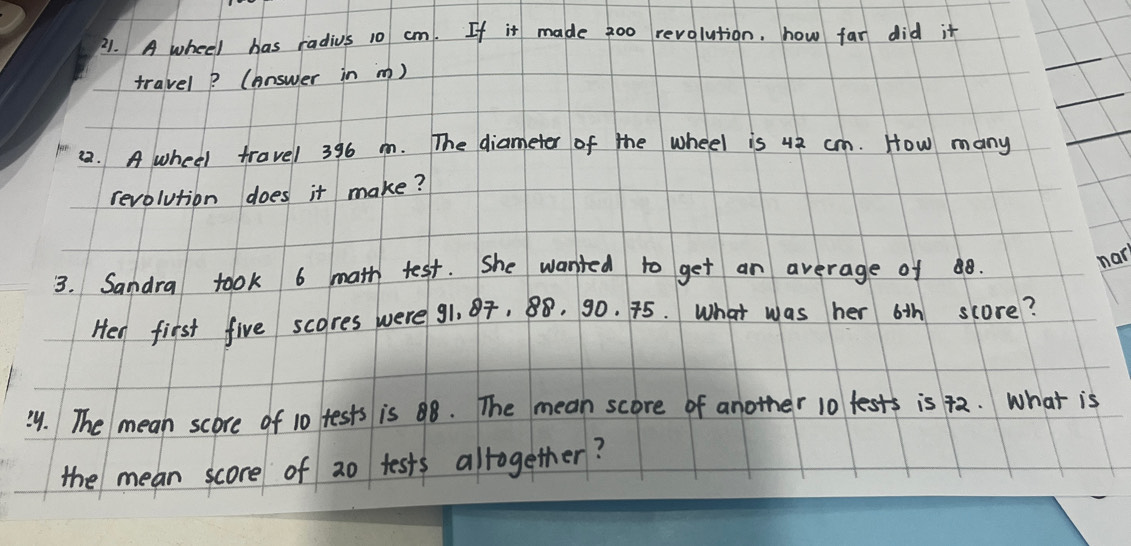 21. A wheel has radius 10 cm. If it made 200 revolution, how far did it
travel? (Answer in m)
22. A wheel travel 396 m. The diameter of the wheel is 42 cm. How many
revolution does it make?
3. Sandra took 6 math test. She wanted to get an average of 88.
Her first five scores were 91, 87, 88, 90, 75. What was her 6th score?
4. The mean score of 10 tests is 88. The mean score of another 10 tests is 72. What is
the mean score of 20 tests altogether?